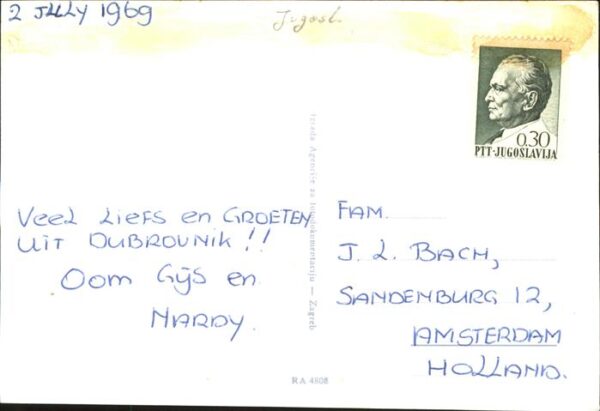 2 JULY 1969
Jugosl.
0.30
PTT-JUGOSLAVIJA
Veel Liefs en GROETEN
UIT DUBROVNIK!!
Oom Gÿs en
NARDY.
FAM.
J. L. BACH,
SANDENBURG 12,
AMSTERDAM
HOLLAND.
Agencije za fotodokumentaciju — Zagreb
RA 4808